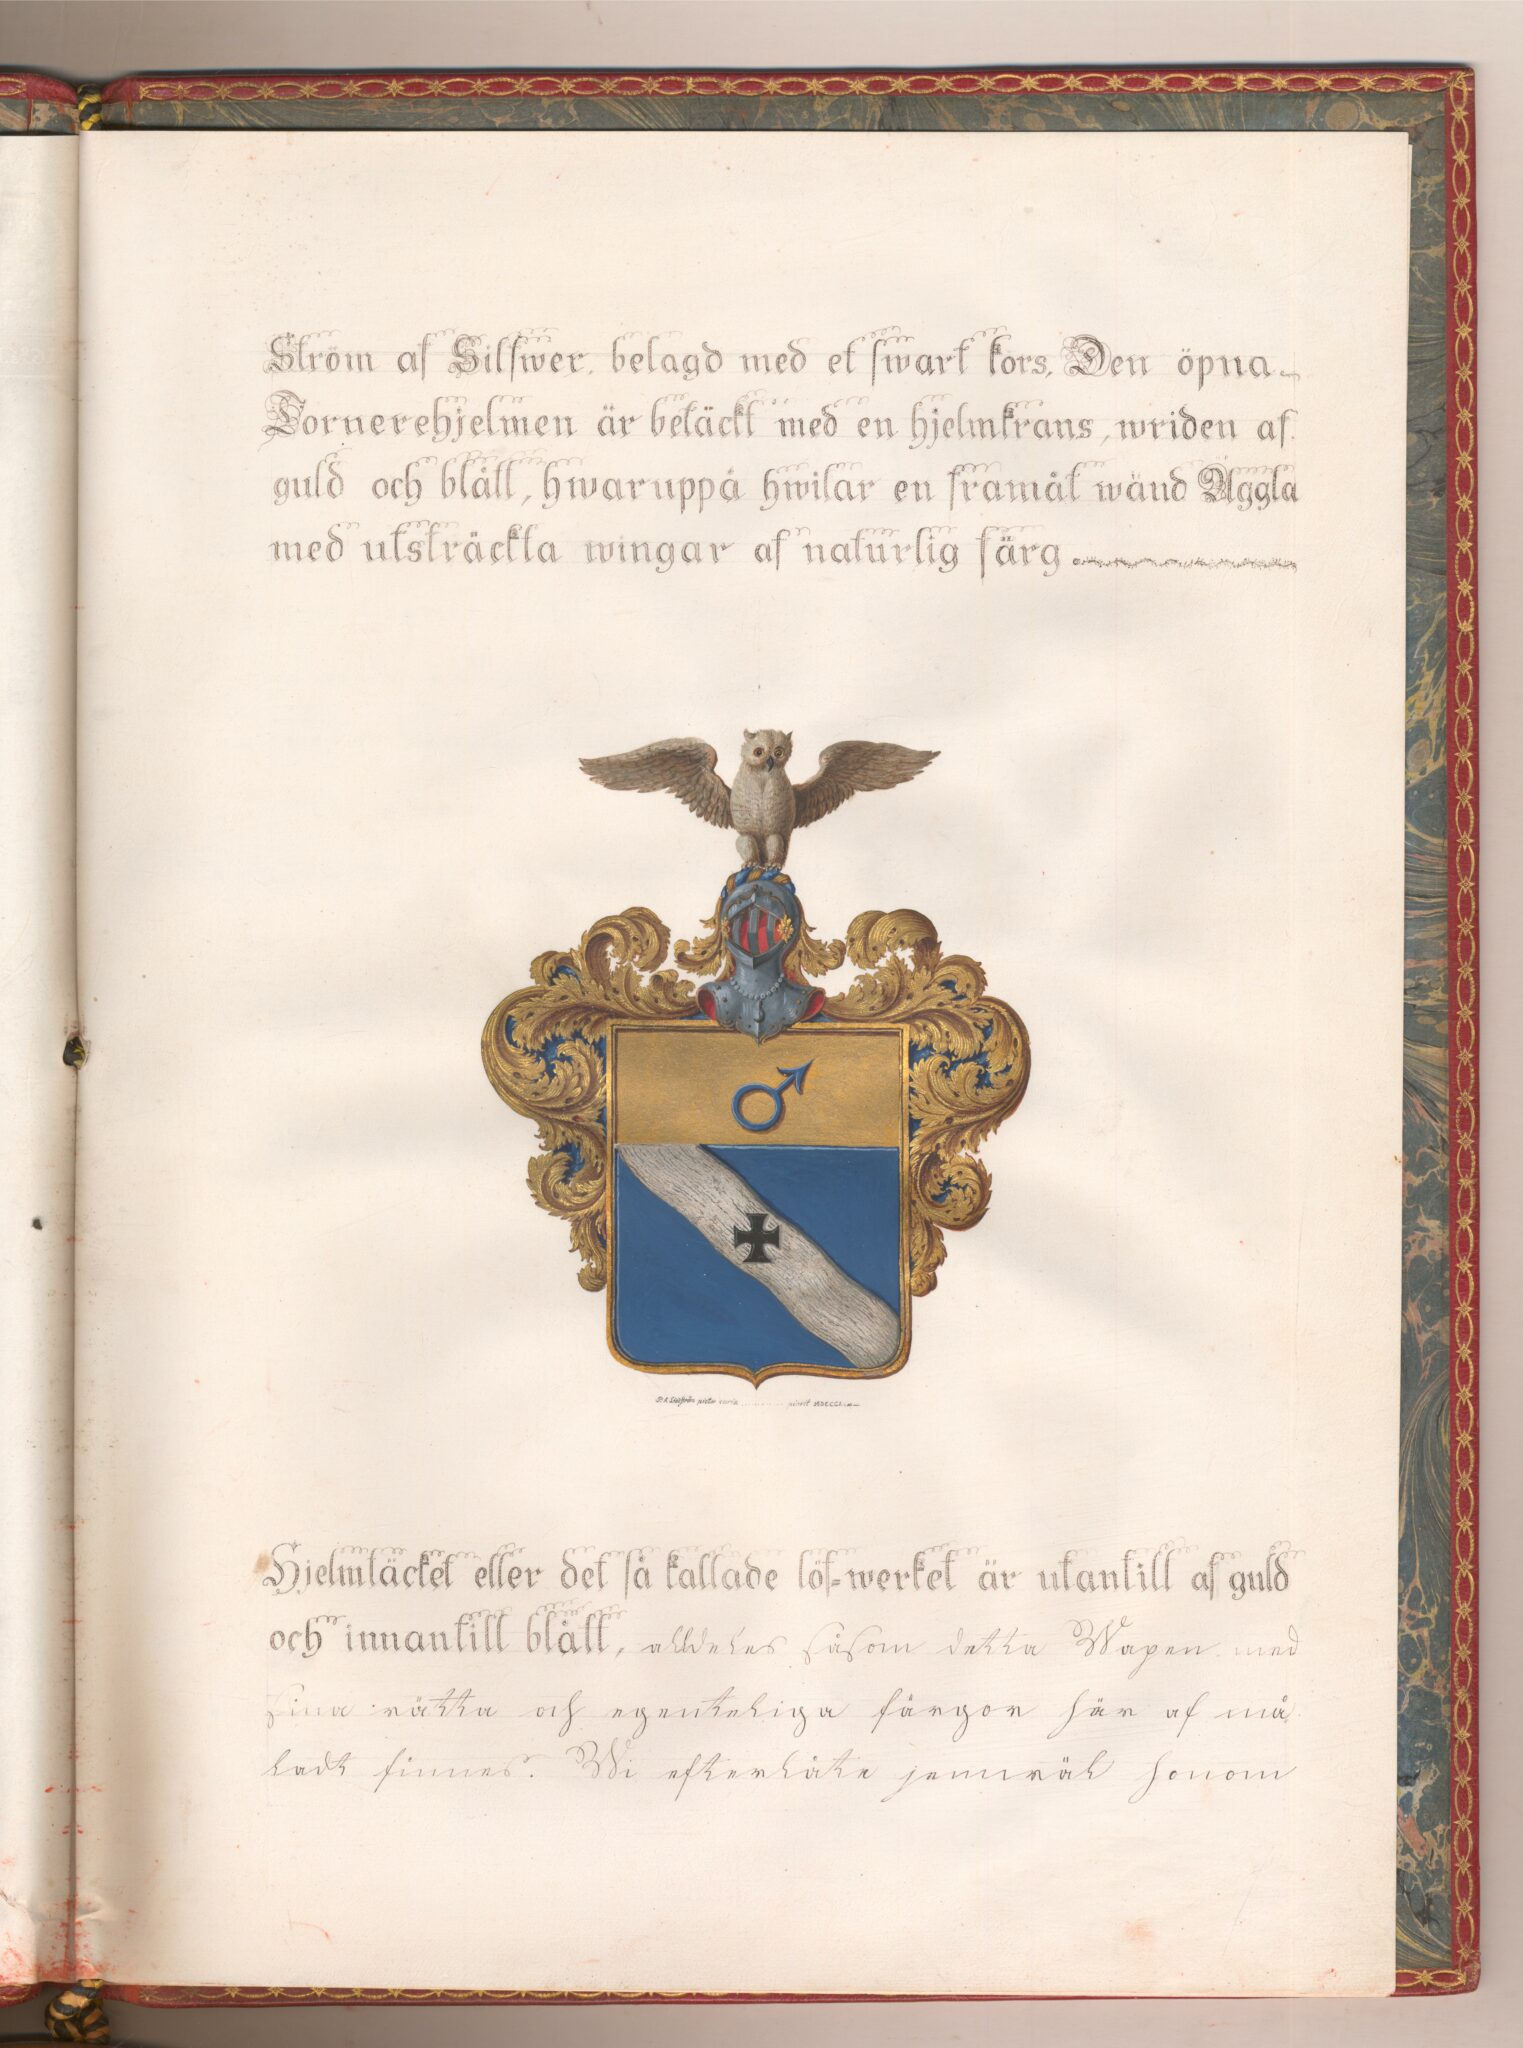 Ström af Silfwer, belagd med et swart kors. Den öpna
Tornerehjelmen är betäckt med en hjelmkrans, wriden af
guld och blått, hwaruppå hwilar en framåt wänd Äggla
med utsträckta wingar af naturlig färg
pinxit
Hjelmtäcket eller det så kallade löf-werket är utantill af guld
och innantill blått, alldeles såsom detta Wapen med
sina rätta och egenteliga färgor här af må
ladt finnes. Wi efterlåte jemwäl honom